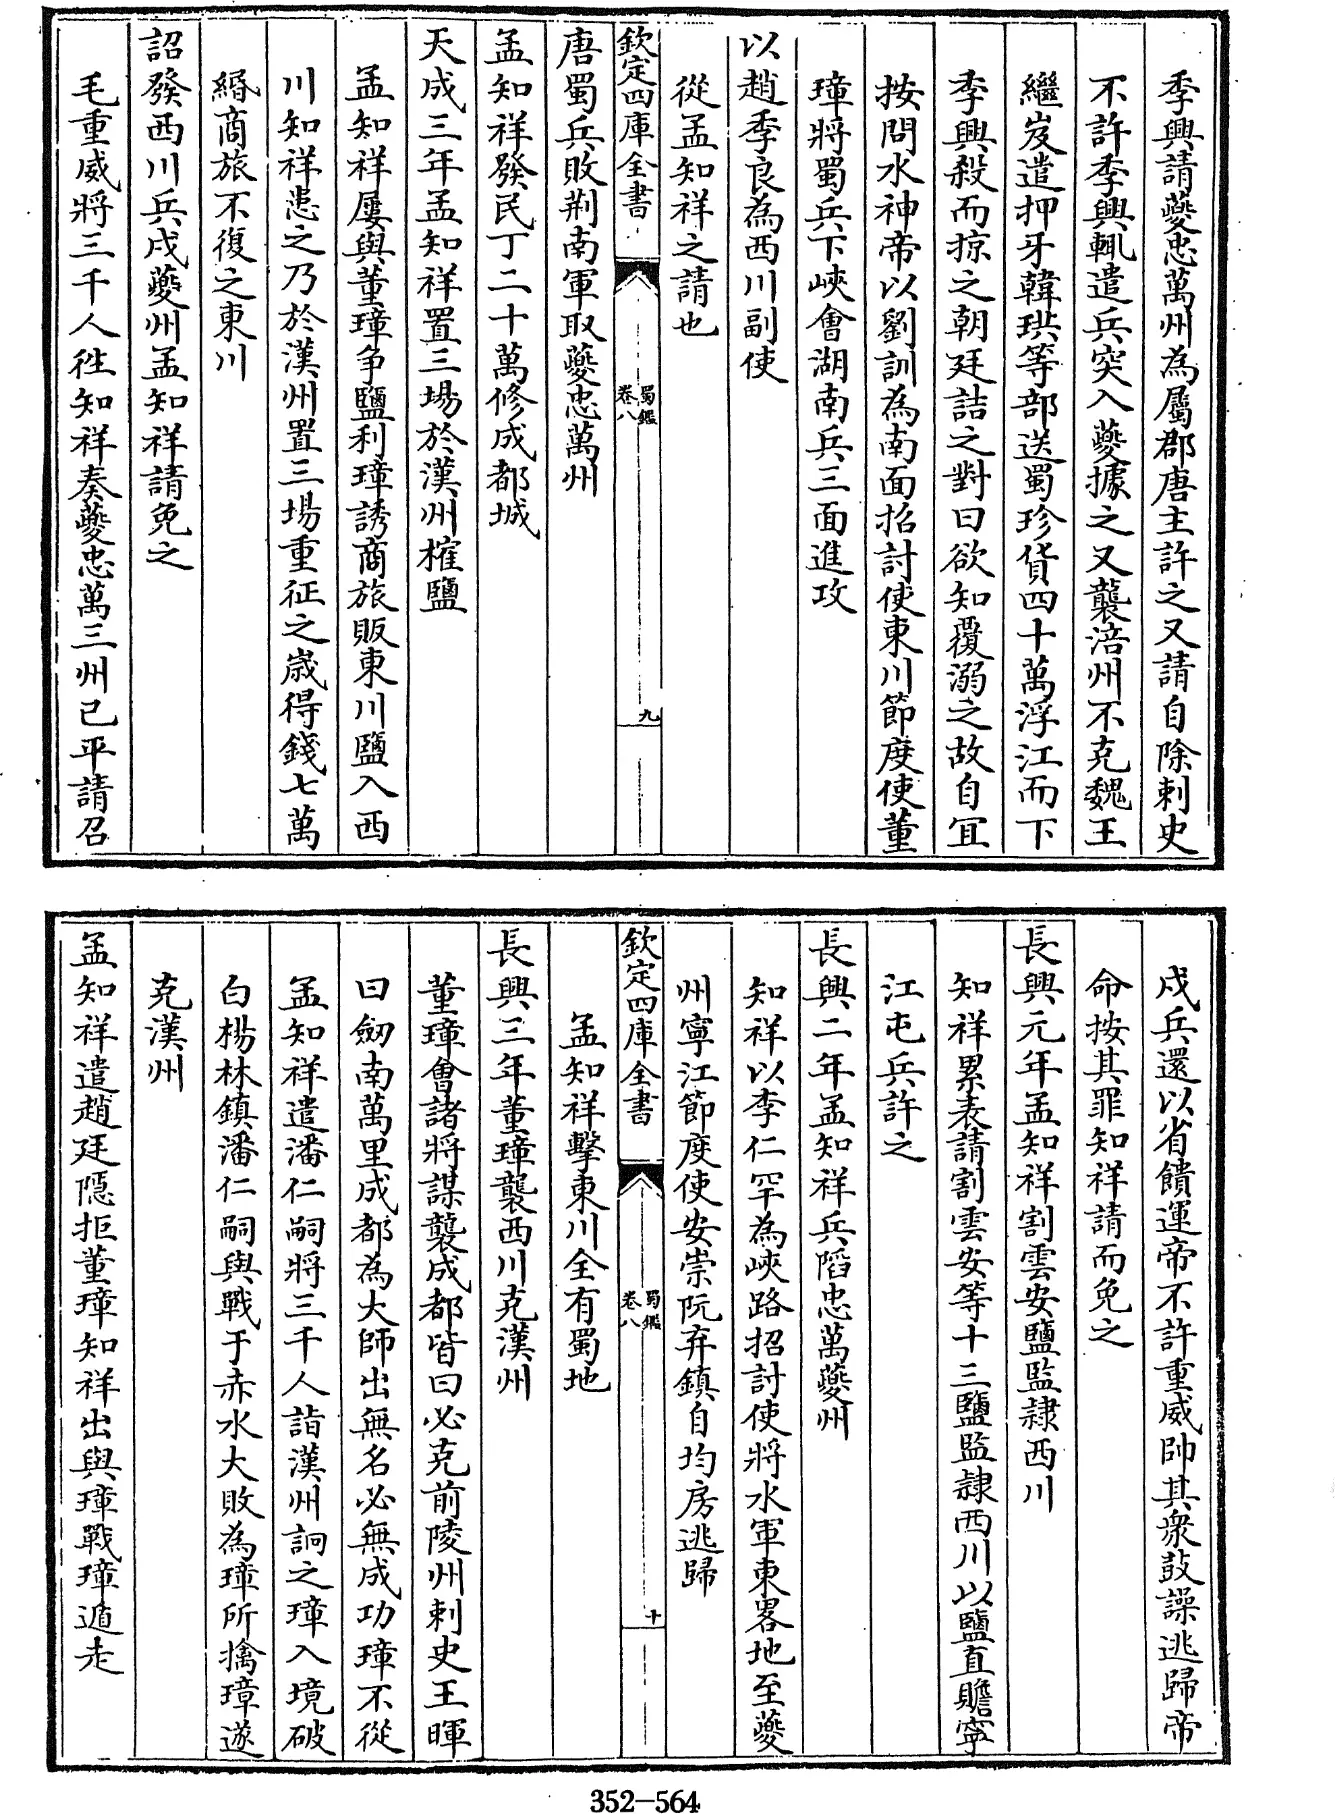 季興請夔忠萬州為屬郡唐主許之又請自除刺史
不許季興輒遣兵突入夔據之又襲涪州不克魏王
繼岌遣押牙韓珙等部送蜀珍貨四十萬浮江而下
季興殺而掠之朝廷詰之對曰欲知覆溺之故自宜
按問水神帝以劉訓為南面招討使東川節度使董
璋將蜀兵下峽會湖南兵三面進攻
以趙季良為西川副使
從孟知祥之請也
欽定四庫全書
蜀鑑
卷八
九
唐蜀兵敗荆南軍取夔忠萬州
孟知祥發民丁二十萬修成都城
天成三年孟知祥置三場於漢州榷鹽
孟知祥屢與董璋争鹽利璋誘商旅販東川鹽入西
川知祥患之乃於漢州置三場重征之歲得錢七萬
緡商旅不復之東川
詔發西川兵戍夔州孟知祥請免之
毛重威將三千人徃知祥奏夔忠萬三州已平請召
戍兵還以省饋運帝不許重威帥其衆鼓譟逃歸帝
命按其罪知祥請而免之
長興元年孟知祥割雲安鹽監隷西川
知祥累表請割雲安等十三鹽監隷西川以鹽直贍寧
江屯兵許之
長興二年孟知祥兵䧟忠萬夔州
知祥以李仁罕為峽路招討使將水軍東畧地至夔
州寧江節度使安崇阮弃鎮自均房逃歸
欽定四庫全書
蜀鑑
卷八
十
孟知祥擊東川全有蜀地
長興三年董璋襲西川克漢州
董璋會諸將謀襲成都皆曰必克前陵州刺史王暉
曰劒南萬里成都為大師出無名必無成功璋不從
孟知祥遣潘仁嗣將三千人詣漢州詗之璋入境破
白楊林鎮潘仁嗣與戰于赤水大敗為璋所擒璋遂
克漢州
孟知祥遣趙廷隱拒董璋知祥出與璋戰璋遁走
352-564